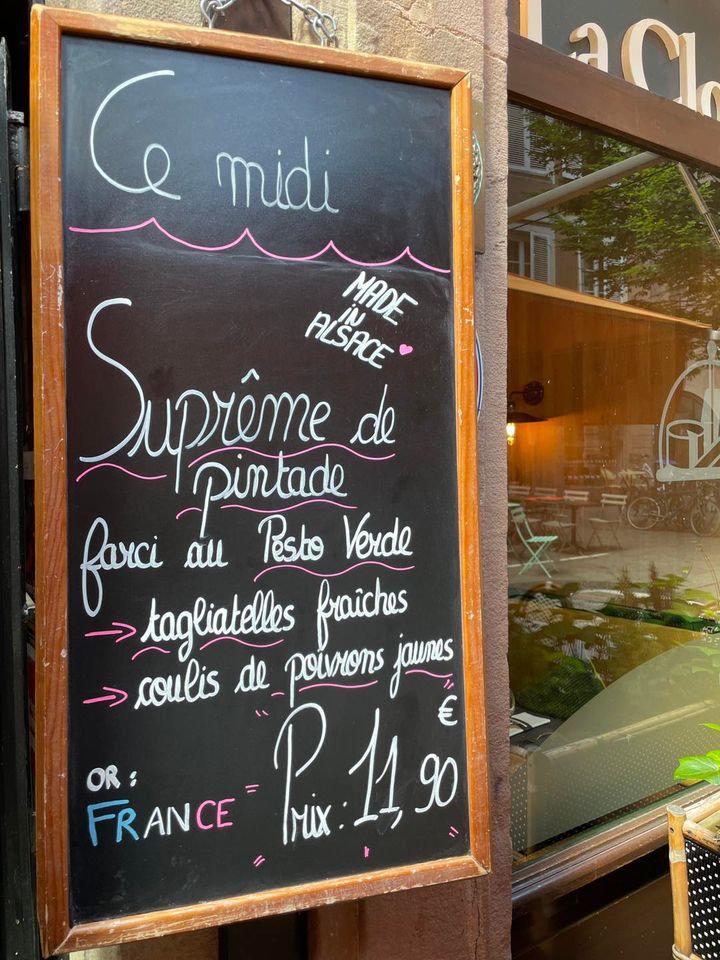 La Clo
Ce midi
MADE
in
ALSACE
Suprême de
pintade
farci au Pesto Verde
→ tagliatelles fraîches
→ coulis de poivrons jaunes
OR :
FRANCE
Prix : 11,90 €